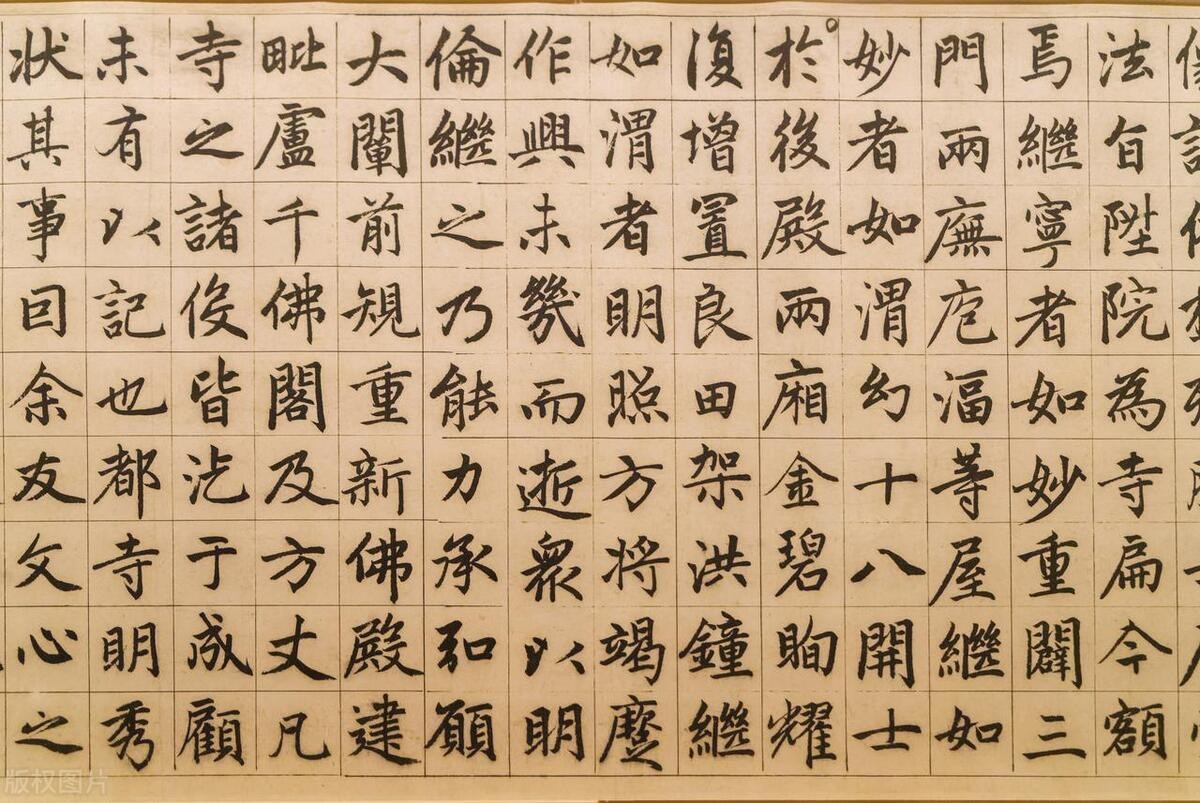 法旨陞院為寺扁今額
焉繼寧者如妙重闢三
門兩廡庖湢等屋繼如
妙者如渭幻十八開士
於後殿兩廂金碧眴耀
復增置良田架洪鐘繼
如渭者明照方将竭
作興未幾而逝眾以明
倫繼之乃能力承弘願
大闡前規重新佛殿建
毗盧千佛閣及方丈凡
寺之諸伇皆汔于成顧
未有以記也都寺明秀
状其事囙余友文心之
版权图片